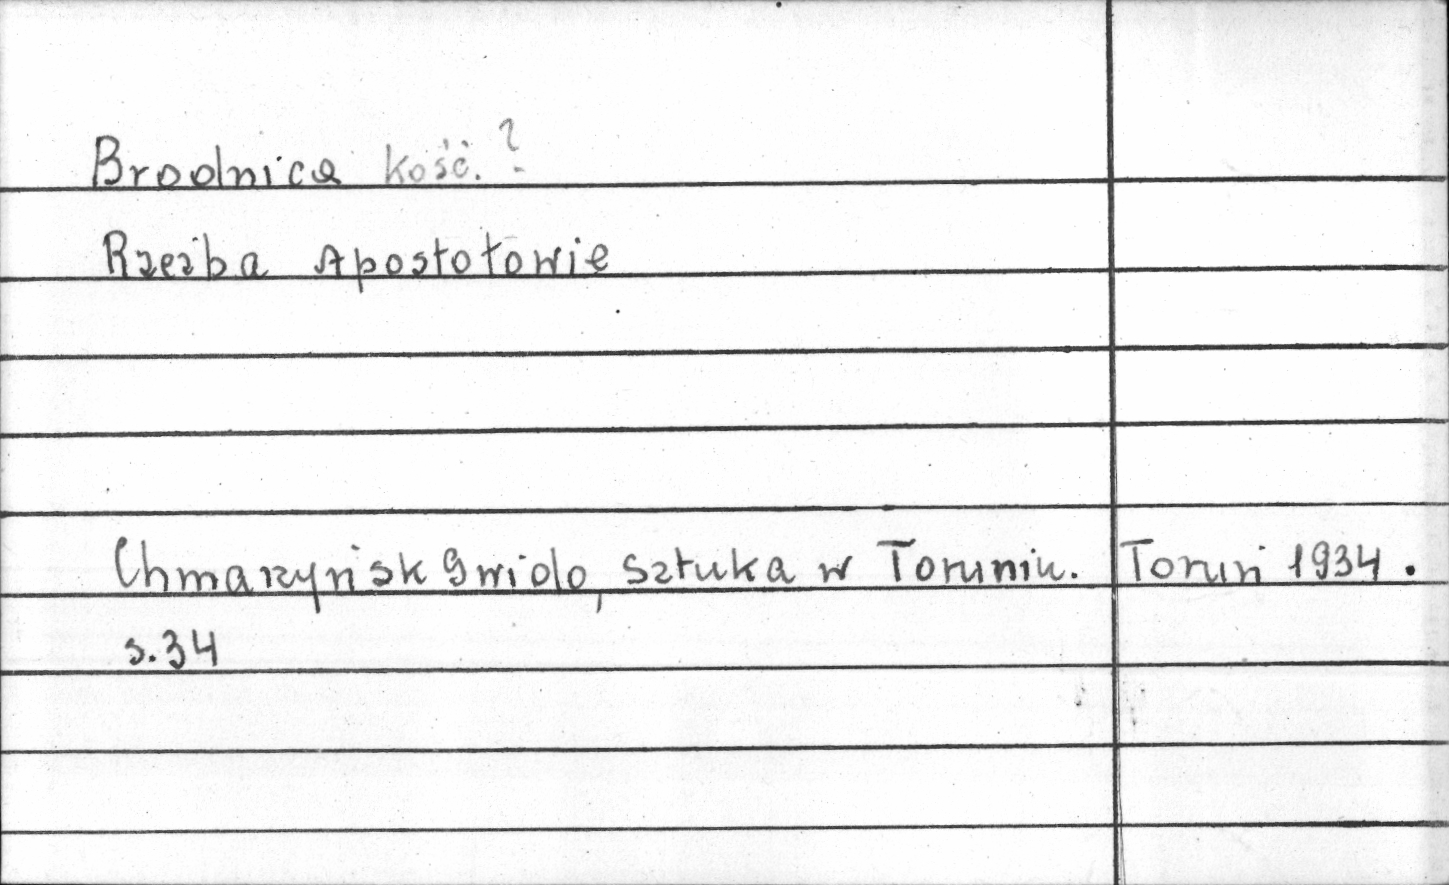 Brodnica kość. ?
Rzeźba Apostołowie
Chmarzyńsk Gwido, Sztuka w Toruniu. Toruń 1934.
s. 34